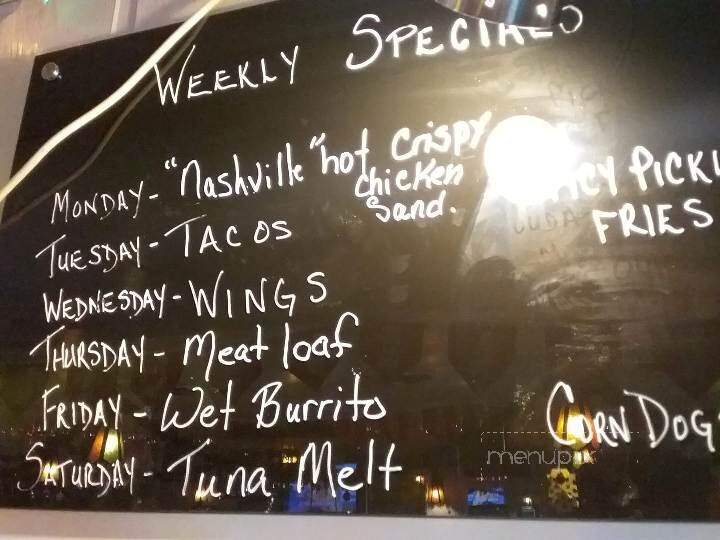 WEEKLY SPECIALS
MONDAY - "Nashville" hot crispy
chicken
Sand.
TUESDAY - TACOS
WEDNESDAY - WINGS
THURSDAY - Meat loaf
FRIDAY - Wet Burrito
SATURDAY - Tuna Melt
PICKL
FRIES
CORN DOG
menupix